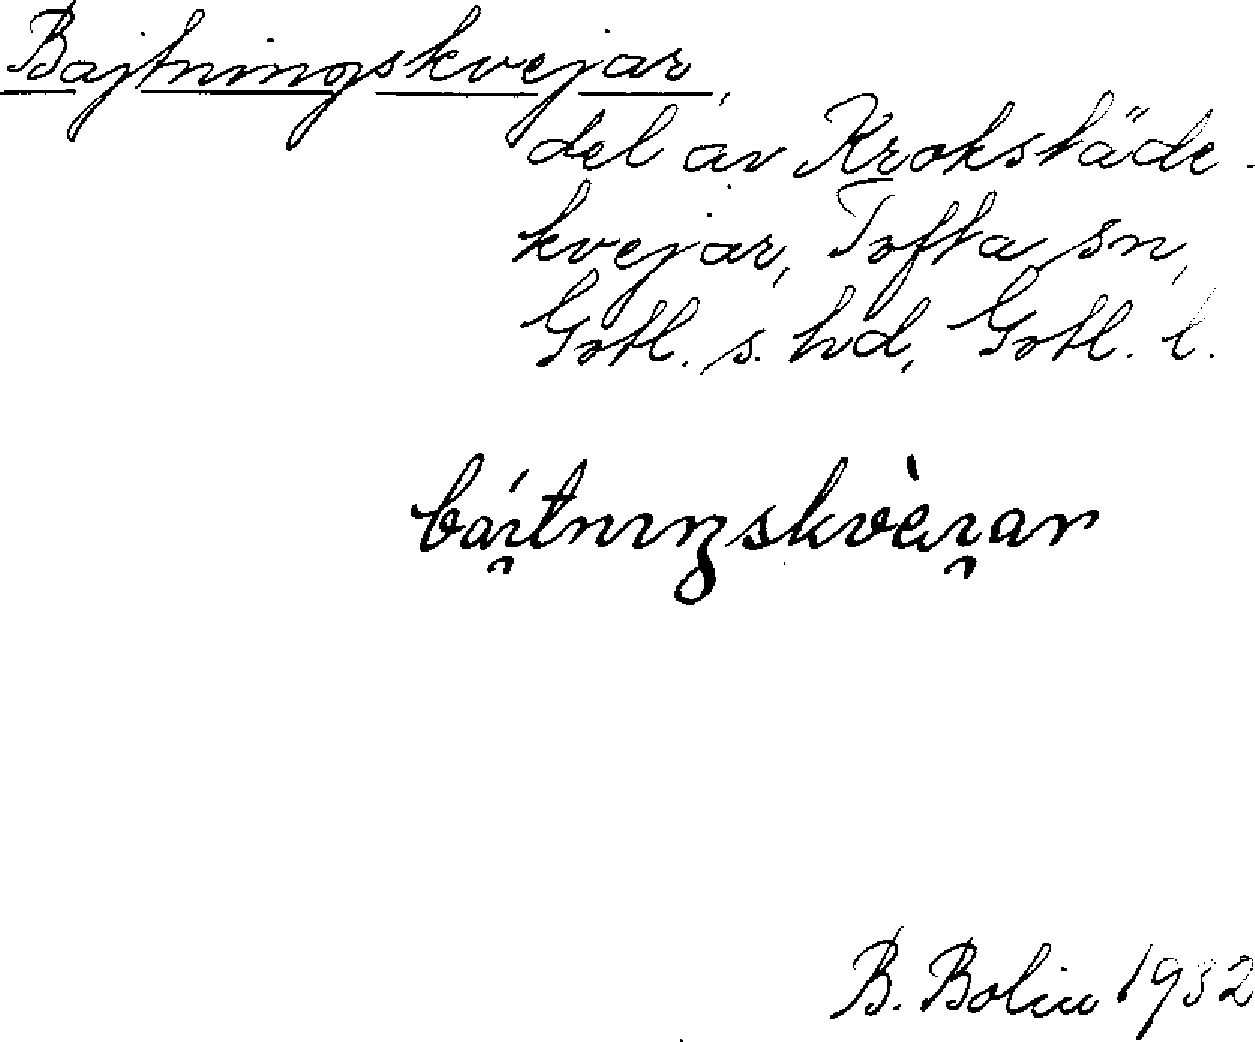 Bajtningskvejar,
del av Krokstäde-
kvejar, Tofta sn,
Gotl. s. hd, Gotl. l.
bái̯tnıŋskvèı̯ar
B. Bolin 1932